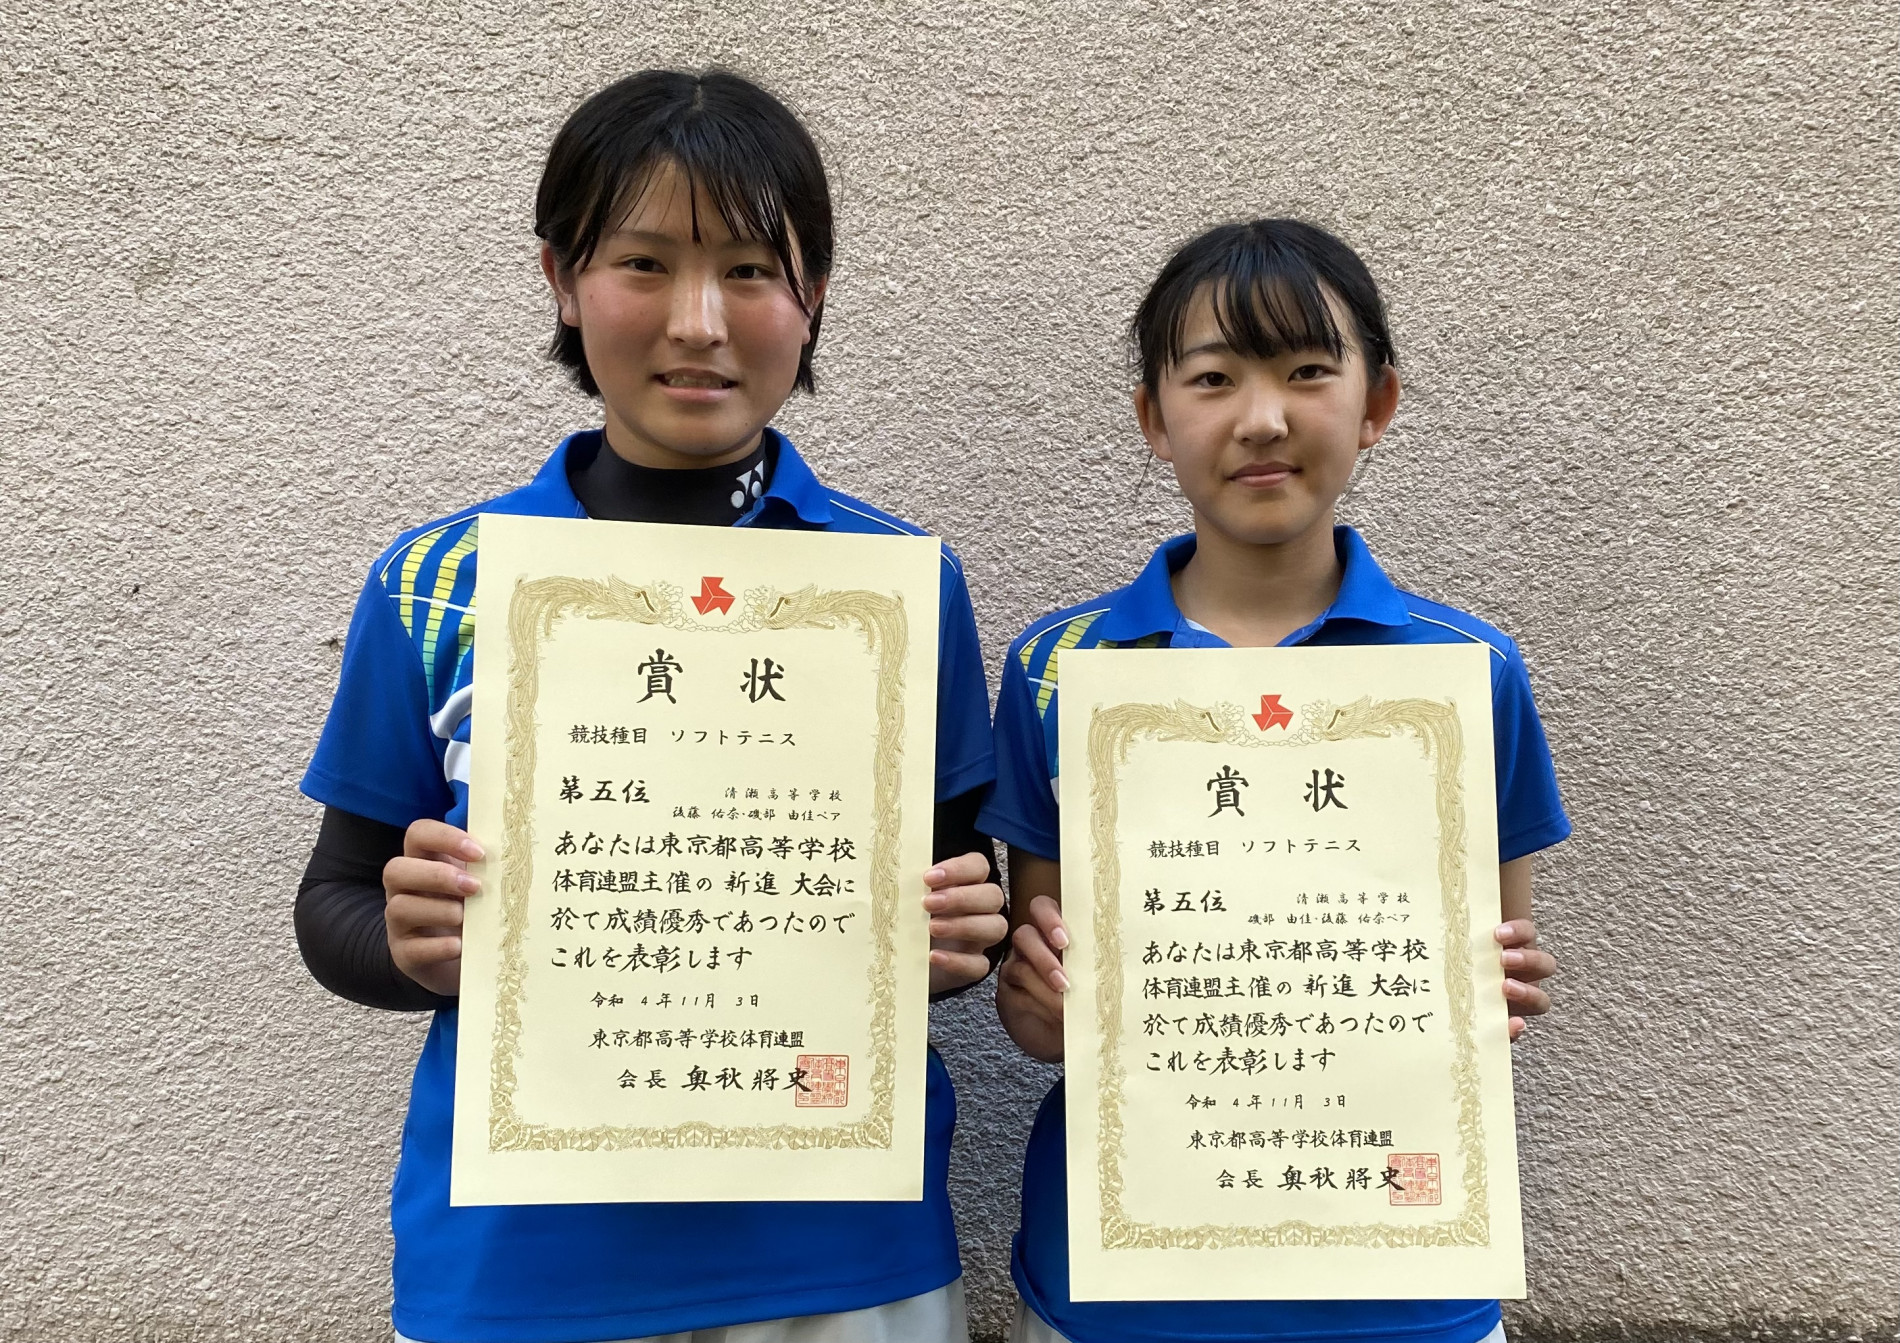 賞状
競技種目 ソフトテニス
第五位 清瀬高等学校
後藤 佑奈・磯部 由佳ペア
あなたは東京都高等学校
体育連盟主催の 新進 大会に
於て成績優秀であつたので
これを表彰します
令和 4年11月 3日
東京都高等学校体育連盟
会長 奥秋將史
賞状
競技種目 ソフトテニス
第五位 清瀬高等学校
磯部 由佳・後藤 佑奈ペア
あなたは東京都高等学校
体育連盟主催の 新進 大会に
於て成績優秀であつたので
これを表彰します
令和 4年11月 3日
東京都高等学校体育連盟
会長 奥秋將史